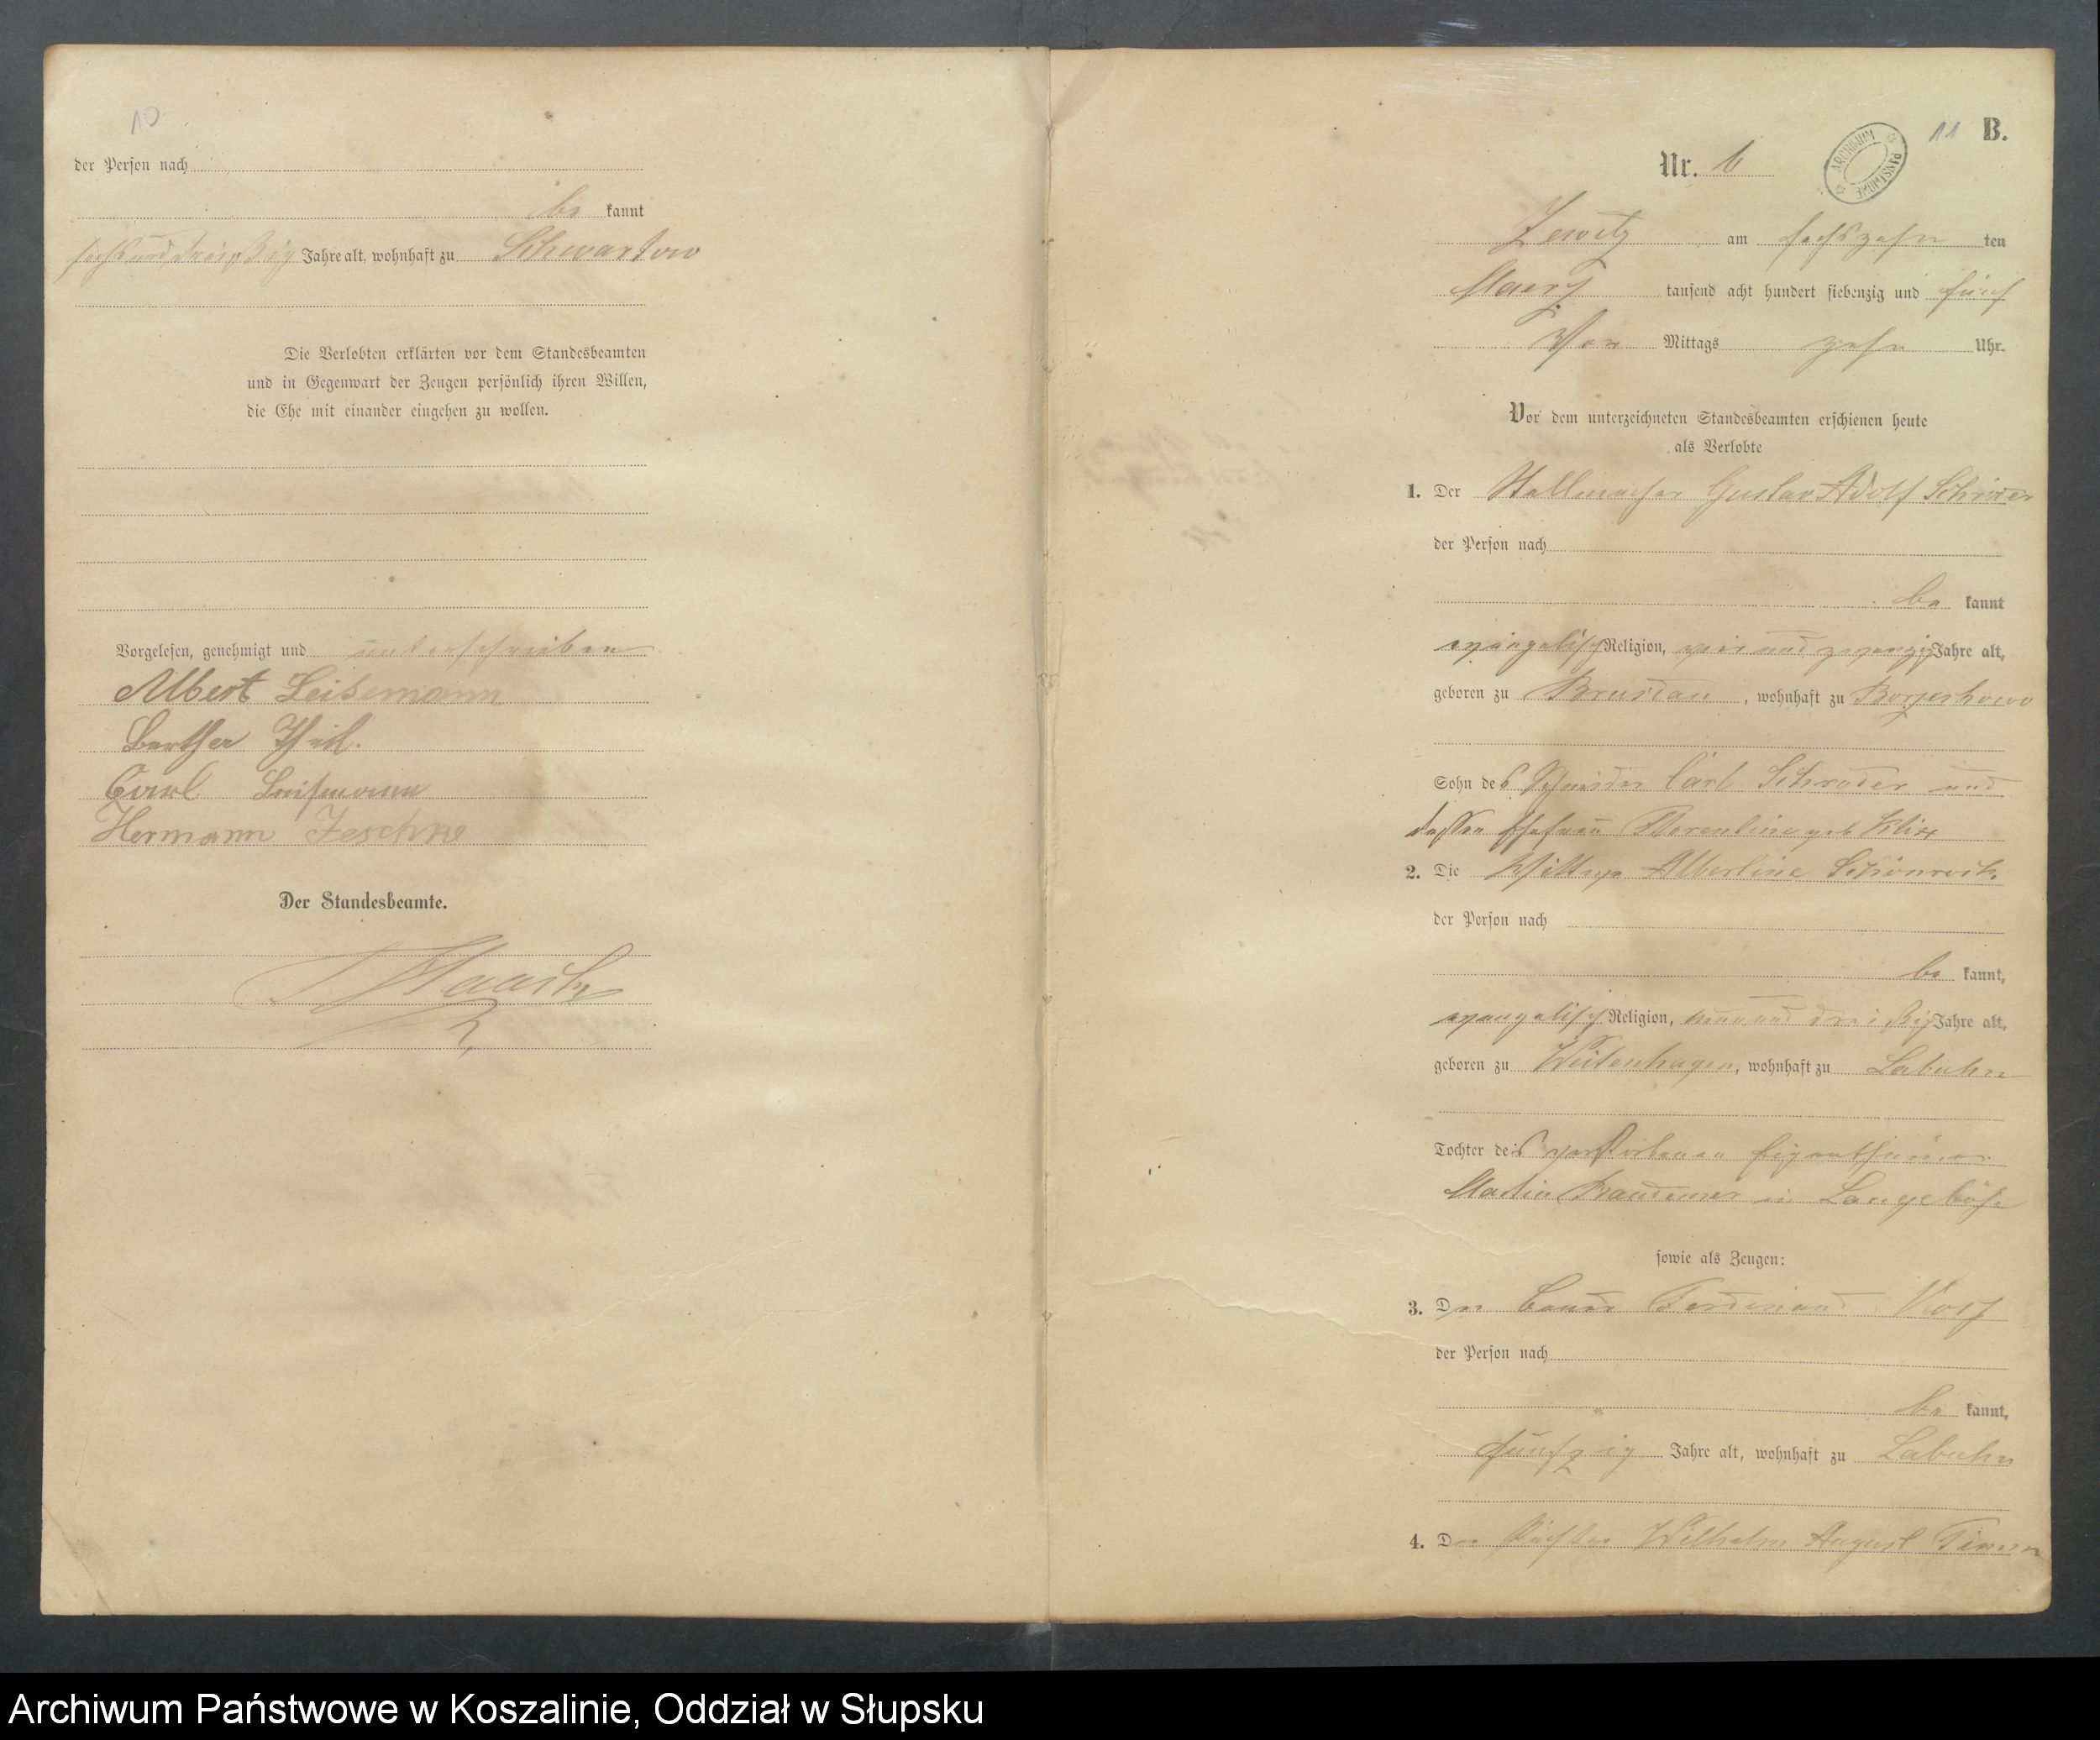 10
der Person nach
be kannt
sechsunddreißig Jahre alt, wohnhaft zu Schwartow
Die Verlobten erklärten vor dem Standesbeamten
und in Gegenwart der Zeugen persönlich ihren Willen,
die Ehe mit einander eingehen zu wollen.
Vorgelesen, genehmigt und unterschrieben
Albert Leismann
Bertha Theil.
Carl Leismann
Hermann Jeschke
Der Standesbeamte.
11 B.
Nr. 6
ARCHIWUM PAŃSTWOWE
Zewitz am sechszehn ten
Maerz tausend acht hundert siebenzig und fünf
Vor Mittags zehn Uhr.
Vor dem unterzeichneten Standesbeamten erschienen heute
als Verlobte
1. Der Stellmacher Gustav Adolf Schröder
der Person nach
be kannt
evangelisch Religion, und zwanzig Jahre alt,
geboren zu Brustau, wohnhaft zu
Sohn des Schneider Carl Schröder und
dessen Ehefrau Florentine geb
2. Die Wittwe Albertine Schönrock
der Person nach
be kannt,
evangelisch Religion, dreißig Jahre alt,
geboren zu Weitenhagen, wohnhaft zu Labuhn
Tochter des verstorbenen Eigenthümer
Martin Brandemer in Langeböse
sowie als Zeugen:
3. Der Bauer Ferdinand
der Person nach
be kannt,
fünfzig Jahre alt, wohnhaft zu Labuhn
4. Der Pächter Wilhelm August
Archiwum Państwowe w Koszalinie, Oddział w Słupsku